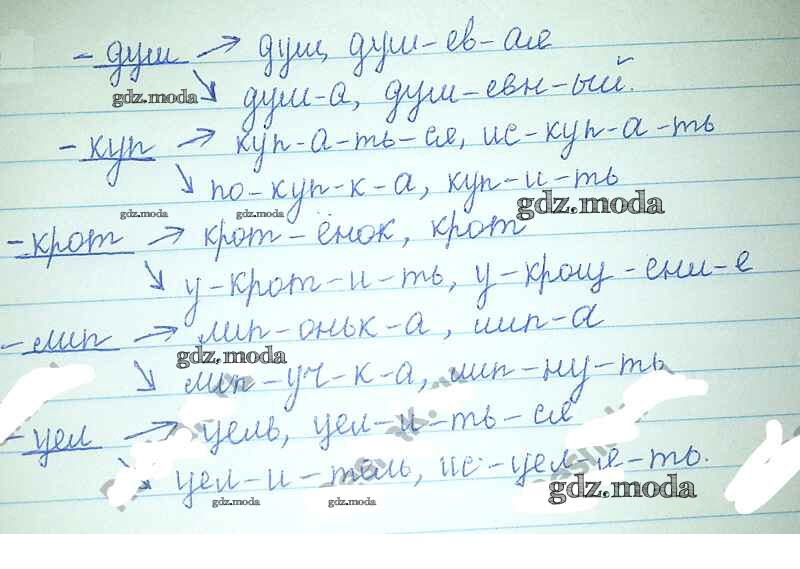 - душ → душ, душ-ев-ая
gdz.moda ↘ душ-а, душ-евн-ый.
- куп → куп-а-ть-ся, ис-куп-а-ть
↘ по-куп-к-а, куп-и-ть
gdz.moda gdz.moda gdz.moda
- крот → крот-ёнок, крот
↘ у-крот-и-ть, у-крощ-ени-е
- лип → лип-оньк-а, лип-а
gdz.moda
↘ лип-уч-к-а, лип-ну-ть
- цел → цель, цел-и-ть-ся
↘ цел-и-тель, ис-цел-я-ть.
gdz.moda gdz.moda gdz.moda